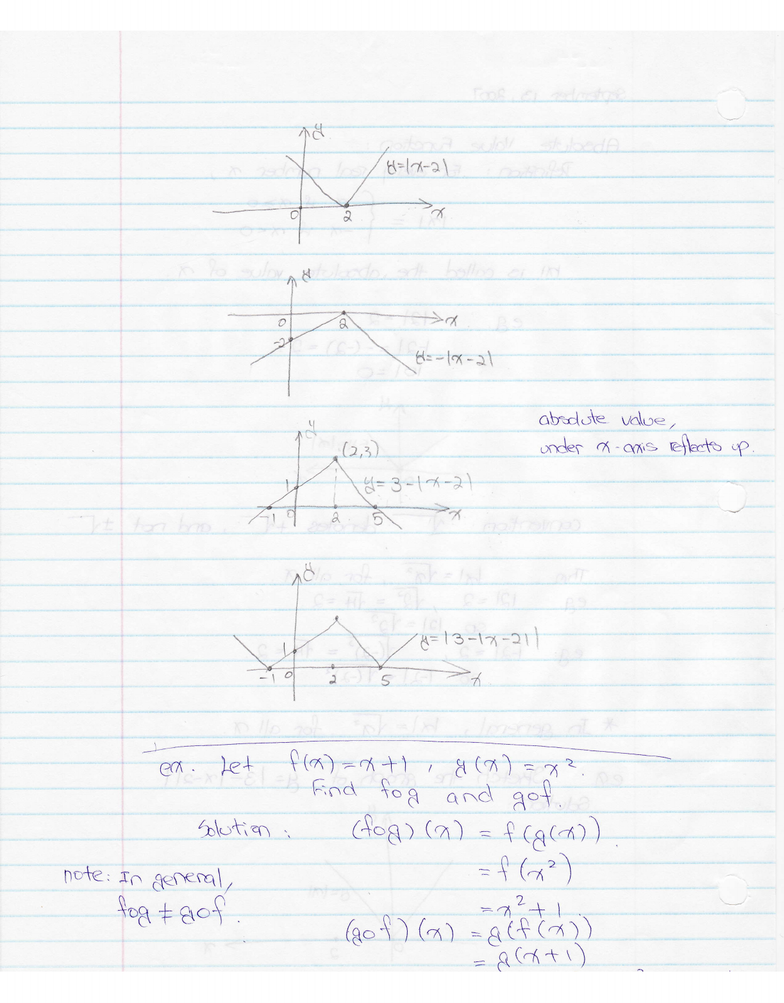 y
y=|x-2|
0 2 x
y
0 2 x
-2
y=-|x-2|
absolute value,
under x-axis reflects up.
y
(2,3)
1 y=3-|x-2|
-1 0 2 5 x
y
1 y=|3-|x-2||
-1 0 2 5 x
ex. Let f(x)=x+1, g(x)=x².
Find fog and gof.
Solution: (fog)(x) = f(g(x)).
note: In general, = f(x²)
fog ≠ gof. = x²+1.
(gof)(x) = g(f(x))
= g(x+1)